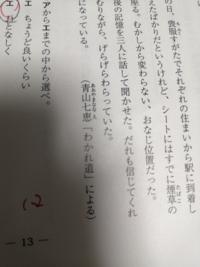 の日、喪服すがたでそれぞれの住まいから駅に到着し
えたばかりだというけれど、シートにはすでに煙草の
座る。むかしから変わらない、おなじ位置だった。
後の記憶を三人に話して聞かせた。だれも信じてくれ
むりながら、げらげらわらっていた。
になっている。
（青山七恵「わかれ道」による）
アからエまでの中から選べ。
エ　ちょうど良いくらい
エ　おとなしく
12
― 13 ―